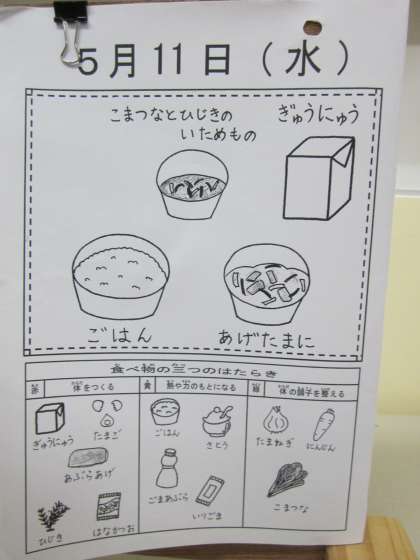 5月11日(水)
こまつなとひじきの
いためもの
ぎゅうにゅう
ごはん
あげたまに
食べ物の三つのはたらき
赤 体をつくる
黄 熱や力のもとになる
緑 体の調子を整える
ぎゅうにゅう
たまご
あぶらあげ
ひじき
はなかつお
ごはん
さとう
ごまあぶら
いりごま
たまねぎ
にんじん
こまつな